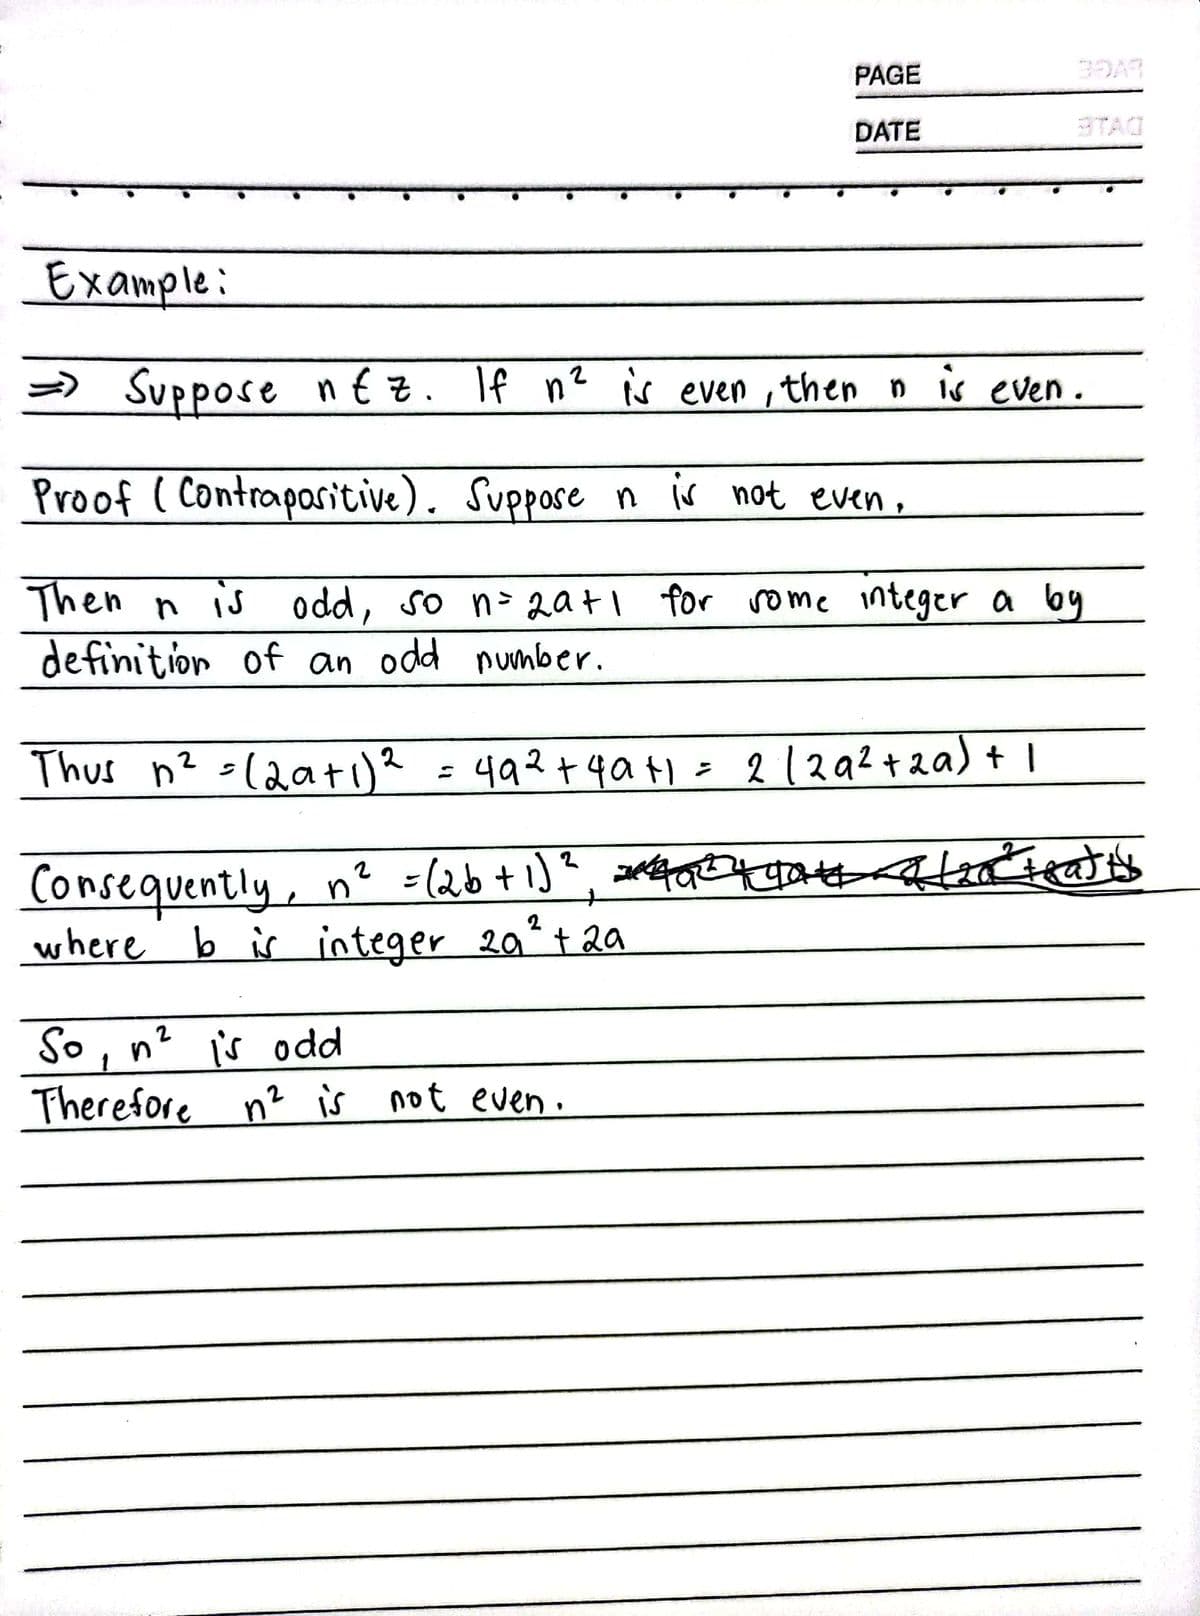 PAGE
DATE
Example:
⇒ Suppose n ∈ z. If n² is even, then n is even.
Proof (Contrapositive). Suppose n is not even,
Then n is odd, so n = 2a+1 for some integer a by
definition of an odd number.
Thus n² = (2a+1)² = 4a² + 4a +1 = 2(2a² + 2a) + 1
Consequently, n² = (2b + 1)²,
where b is integer 2a² + 2a
So, n² is odd
Therefore n² is not even.